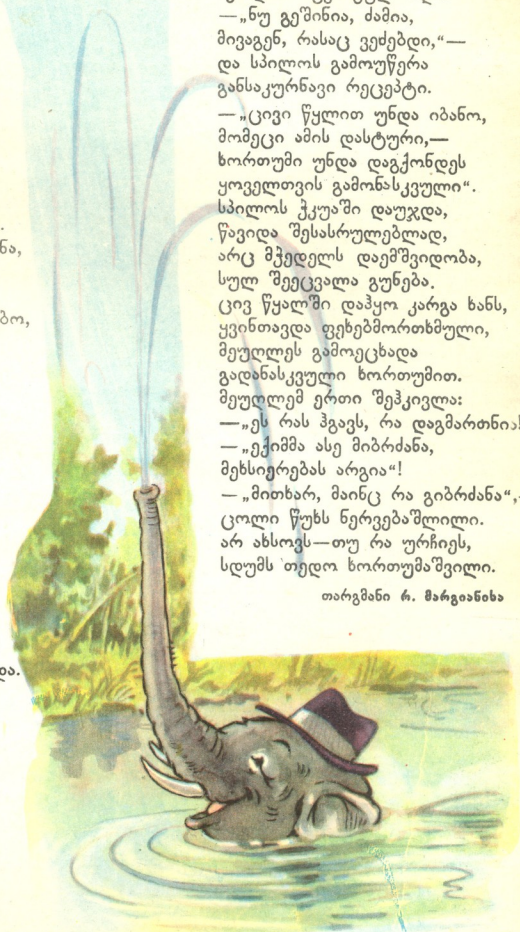 —„ნუ გეშინია, ძამია,
მივაგენ, რასაც ვეძებდი,“—
და სპილოს გამოუწერა
განსაკურნავი რეცეპტი.
—„ცივი წყლით უნდა იბანო,
მომეცი ამის დასტური,—
ხორთუმი უნდა დაგქონდეს
ყოველთვის გამონასკვული“.
სპილოს ჭკუაში დაუჯდა,
წავიდა შესასრულებლად,
არც მჭედელს დაემშვიდობა,
სულ შეეცვალა გუნება.
ცივ წყალში დაჰყო კარგა ხანს,
ყვინთავდა ფეხებმორთხმული,
მეუღლეს გამოეცხადა
გადანასკვული ხორთუმით.
მეუღლემ ერთი შეჰკივლა:
—„ეს რას ჰგავს, რა დაგმართნია!
—„ექიმმა ასე მიბრძანა,
მეხსიერებას არგია“!
—„მითხარ, მაინც რა გიბრძანა“,-
ცოლი წუხს ნერვებაშლილი.
არ ახსოვს—თუ რა ურჩიეს,
სდუმს თედო ხორთუმაშვილი.
თარგმანი რ. მარგიანისა
ნა,
ბო,
და.